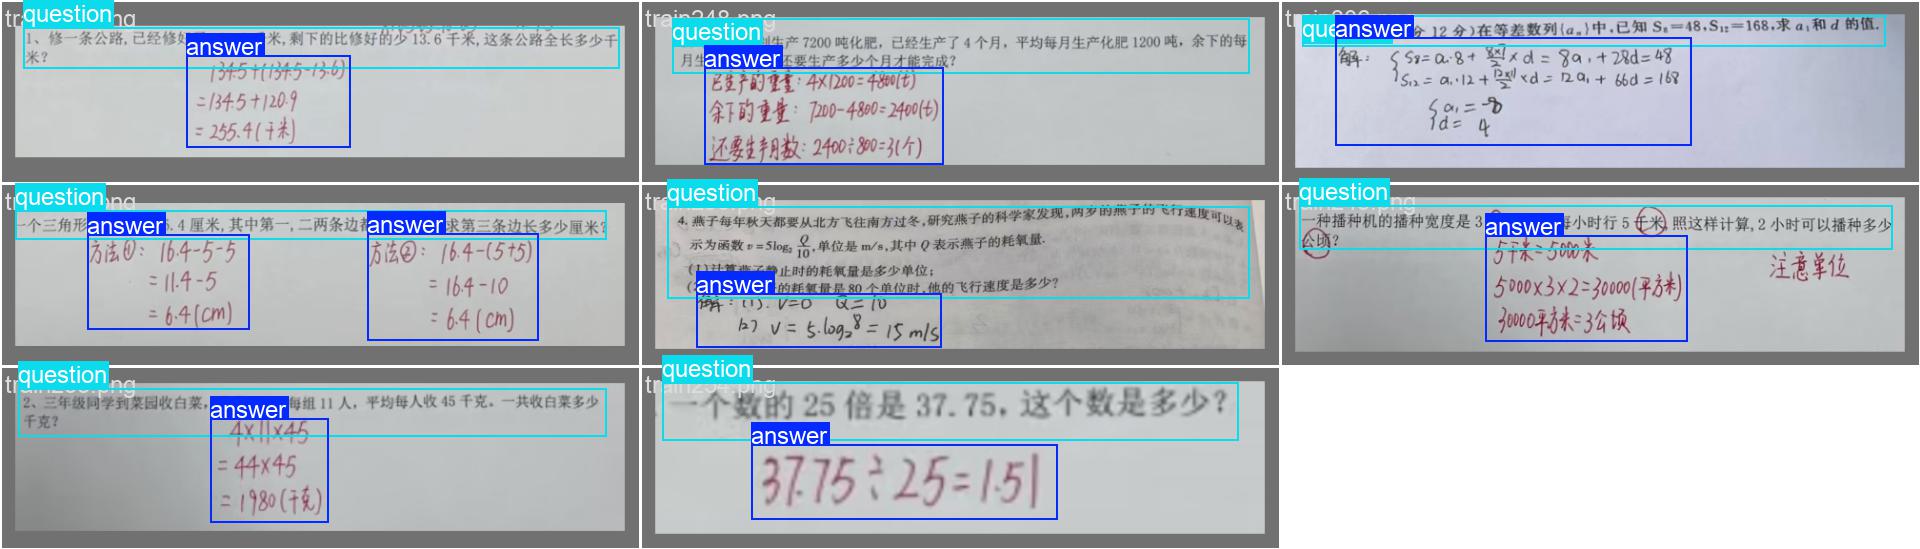 question
1、修一条公路,已经修好
米,剩下的比修好的少 13.6 千米,这条公路全长多少千
米?
answer
134.5+(134.5-13.6)
=134.5+120.9
=255.4(千米)
question
生产 7200 吨化肥，已经生产了 4 个月，平均每月生产化肥 1200 吨，余下的每
月生
还要生产多少个月才能完成?
answer
已生产的重量: 4×1200=4800(t)
余下的重量: 7200-4800=2400(t)
还要生产月数: 2400÷800=3(个)
answer
分 12 分)在等差数列{aₙ}中,已知 S₈=48,S₁₂=168,求 a₁和 d 的值.
解: S₈=a₁·8+8×7/2×d=8a₁+28d=48
S₁₂=a₁·12+12×11/2×d=12a₁+66d=168
a₁=-8
d=4
question
一个三角形
.4 厘米,其中第一,二两条边都
求第三条边长多少厘米?
answer
方法①: 16.4-5-5
=11.4-5
=6.4(cm)
answer
方法②: 16.4-(5+5)
=16.4-10
=6.4(cm)
question
4. 燕子每年秋天都要从北方飞往南方过冬,研究燕子的科学家发现,两岁的燕子的飞行速度可以表
示为函数 v=5log₂ Q/10,单位是 m/s,其中 Q 表示燕子的耗氧量.
(1)计算燕子静止时的耗氧量是多少单位;
的耗氧量是 80 个单位时,他的飞行速度是多少?
answer
解: (1). V=0 Q=10
(2) V=5.log₂8=15 m/s
question
一种播种机的播种宽度是 3
每小时行 5 千米,照这样计算,2 小时可以播种多少
公顷?
answer
5千米=5000米
5000×3×2=30000(平方米)
30000平方米=3公顷
注意单位
question
2、三年级同学到菜园收白菜,
每组 11 人，平均每人收 45 千克。一共收白菜多少
千克?
answer
4×11×45
=44×45
=1980(千克)
question
一个数的 25 倍是 37.75, 这个数是多少?
answer
37.75÷25=1.51